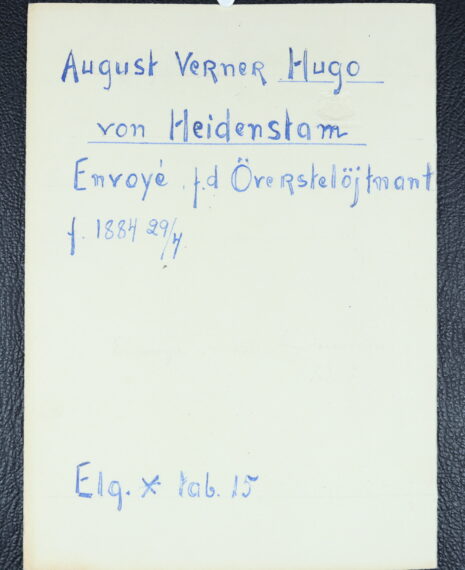 August Verner Hugo
von Heidenstam
Envoyé, f.d Överstelöjtnant
f. 1884 29/4
Elg. * tab. 15